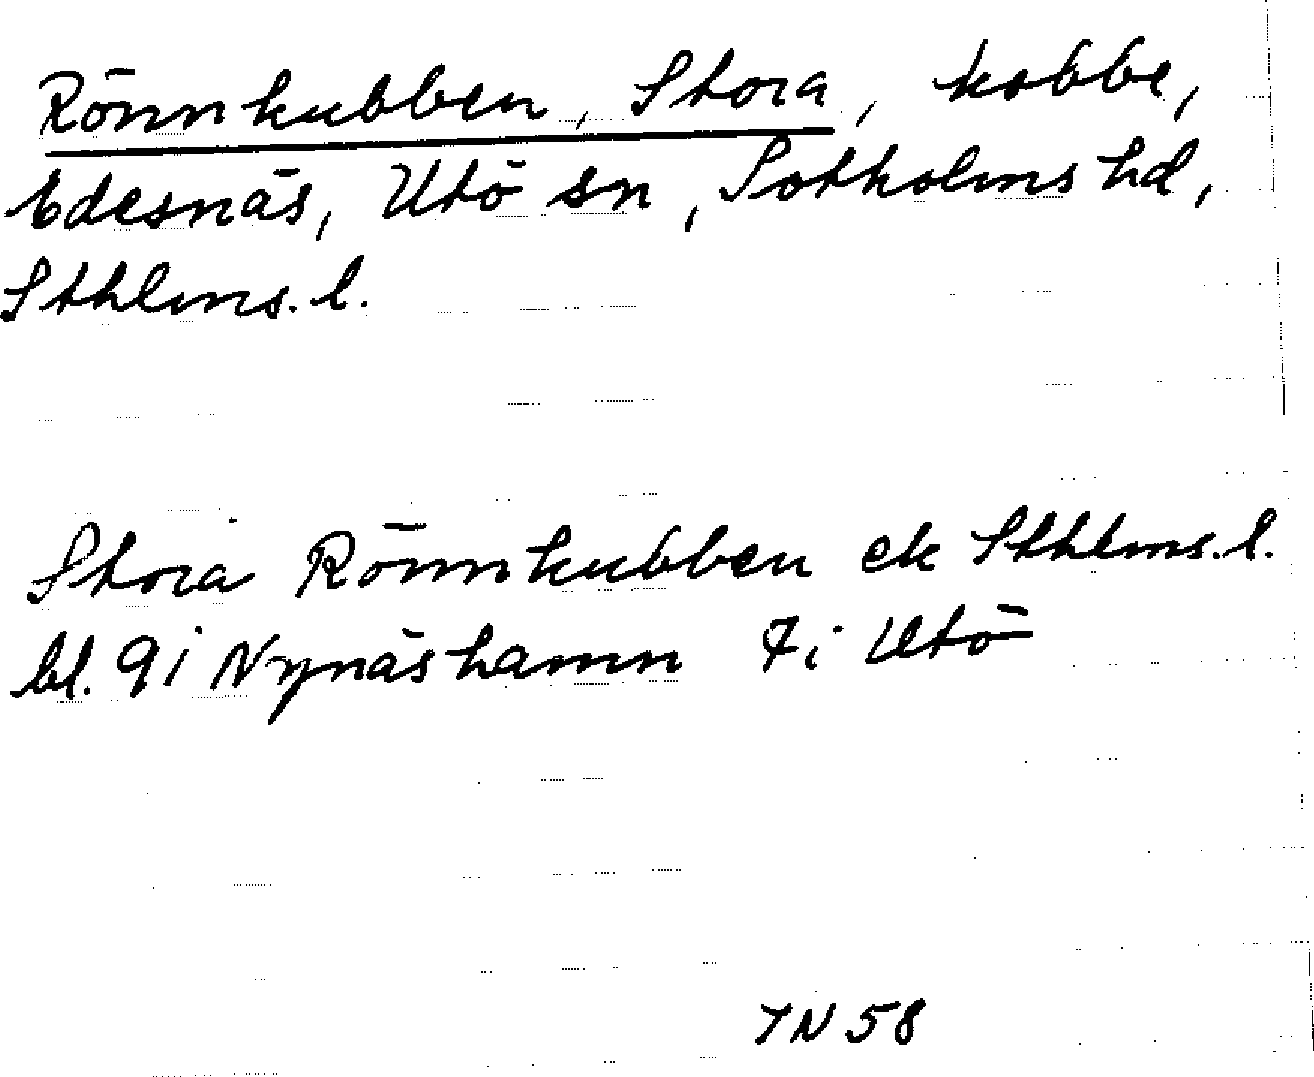 Rönnkubben, Stora, kobbe,
Edesnäs, Utö sn, Sotholms hd,
Sthlms. l.
Stora Rönnkubben ek Sthlms. l.
bl. 9 i Nynäshamn 7 i Utö
IN 58